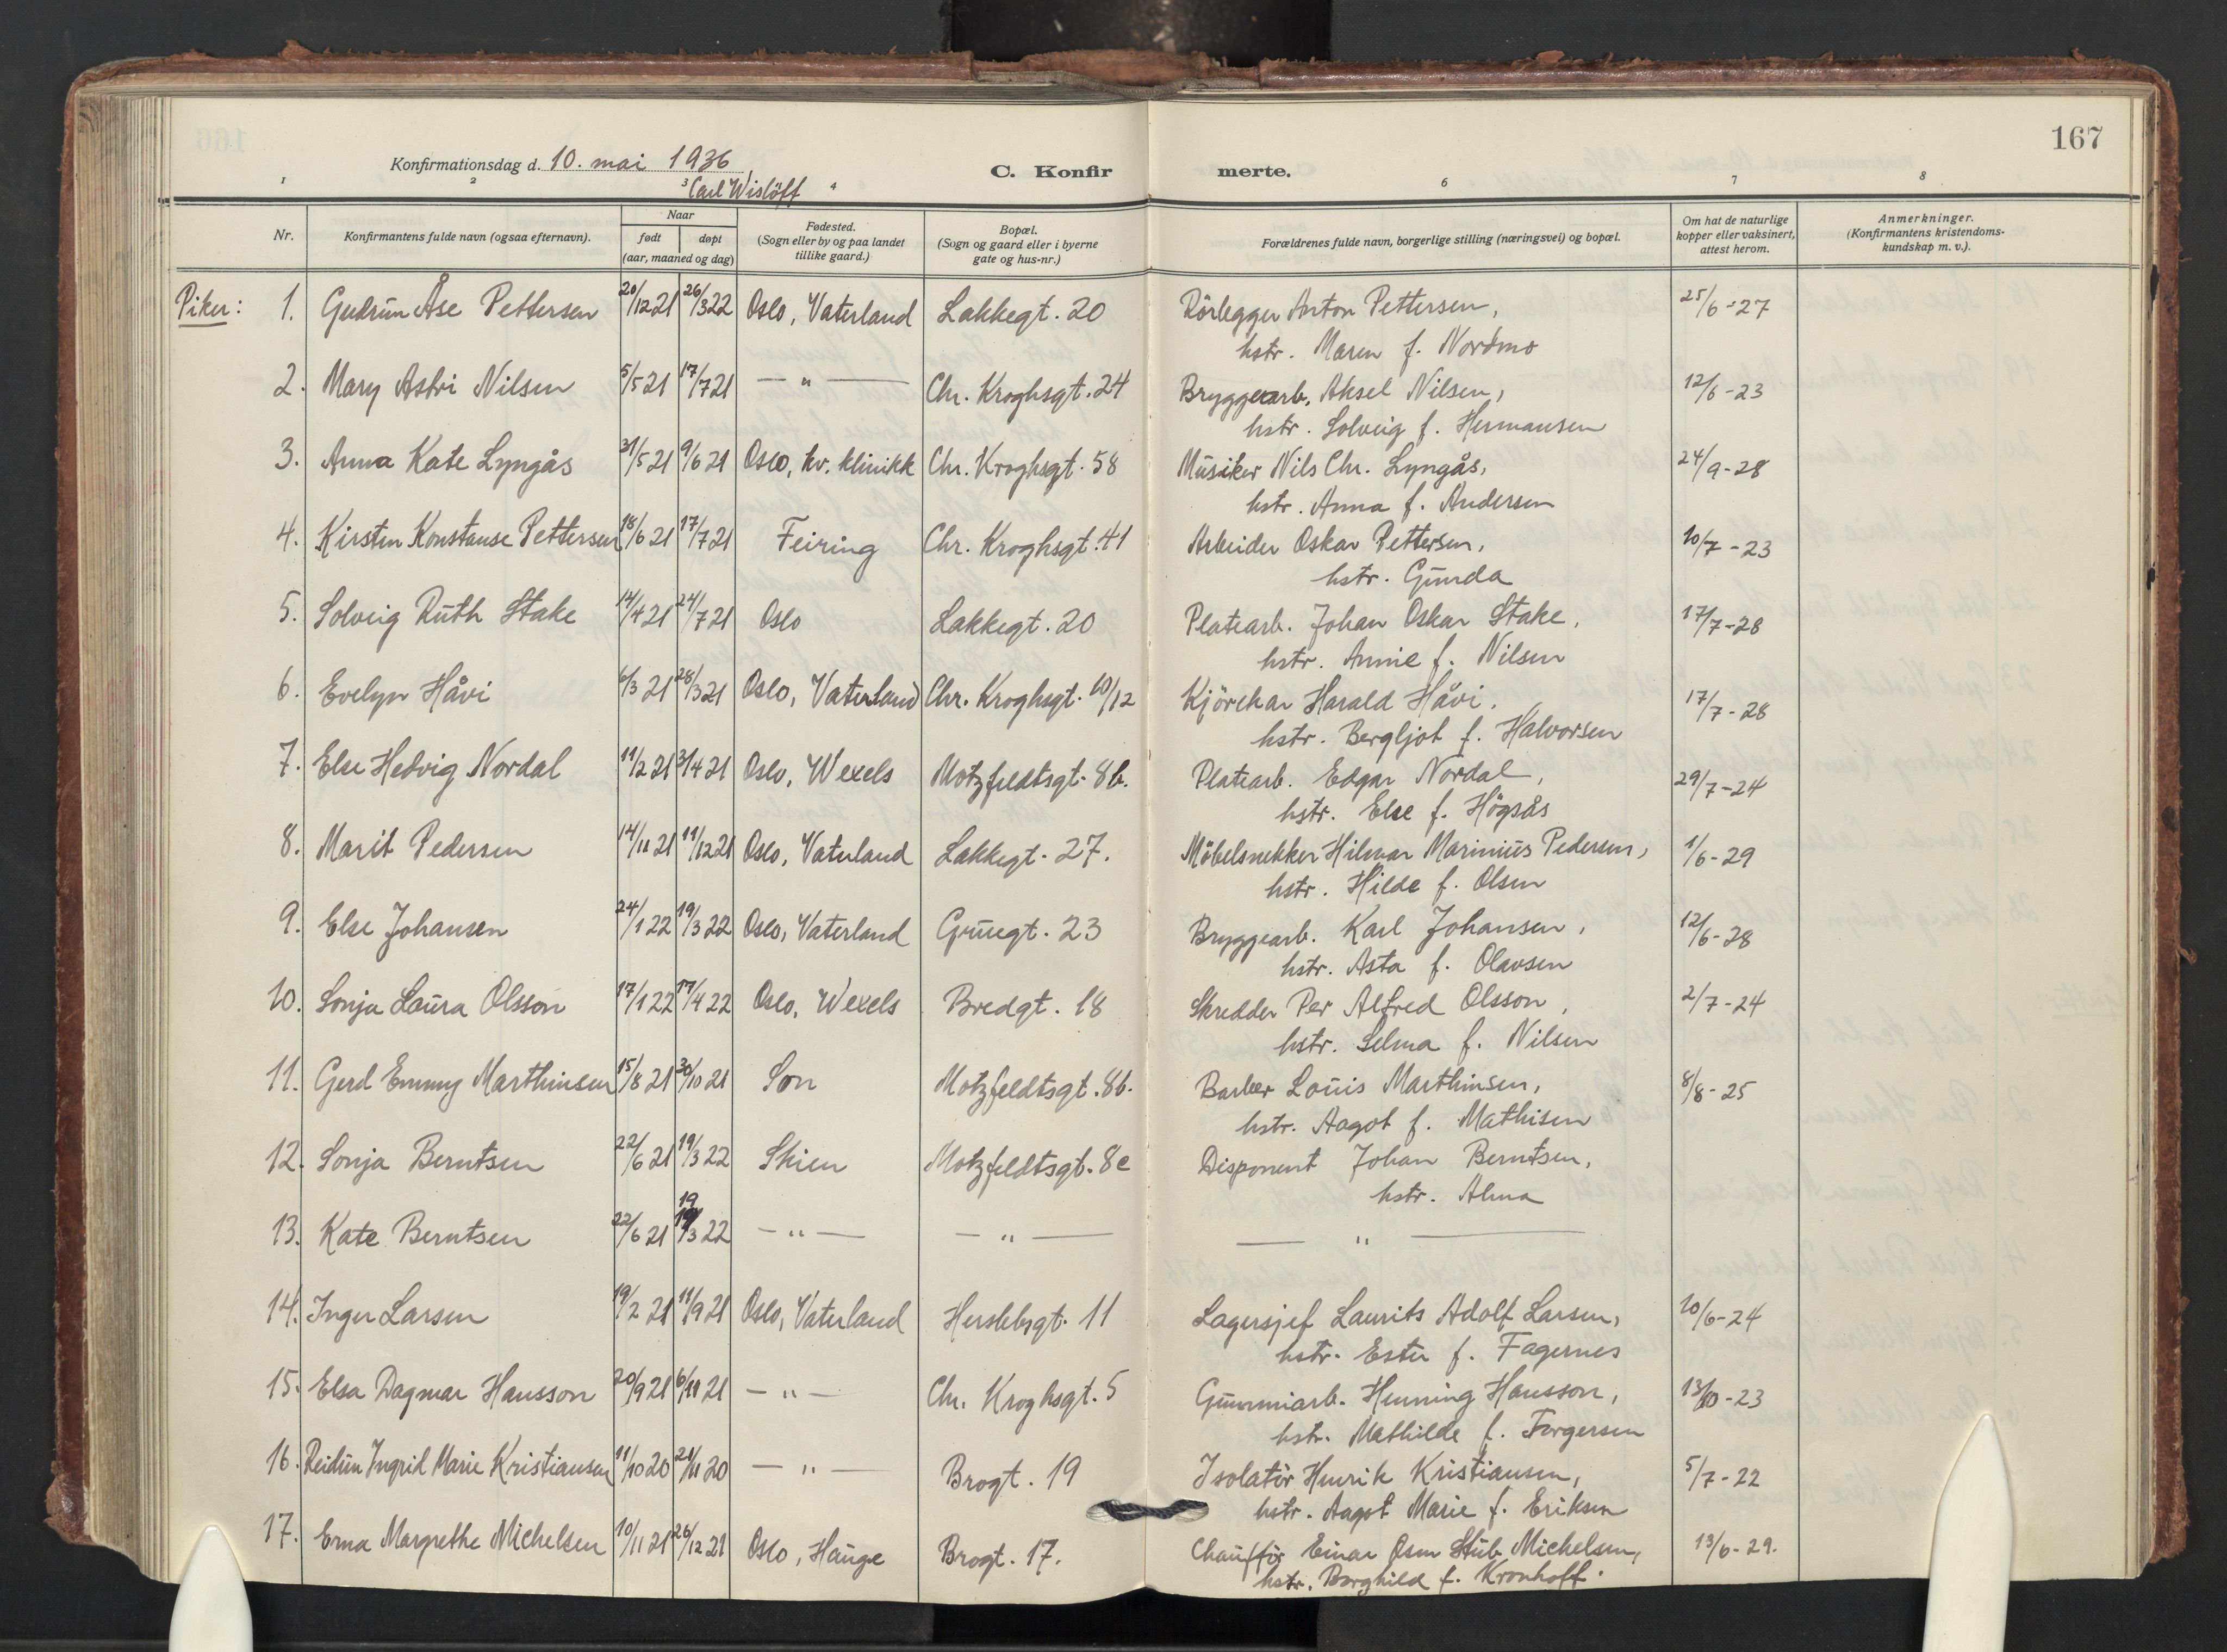 167
Konfirmationsdag d. 10. mai 1936
Carl Wislöff
C. Konfir merte.
1 2 3 4 6 7 8
Nr.
Konfirmantens fulde navn (ogsaa efternavn).
Naar
født døpt
(aar, maaned og dag)
Fødested.
(Sogn eller by og paa landet
tillike gaard.)
Bopæl.
(Sogn og gaard eller i byerne
gate og hus-nr.)
Forældrenes fulde navn, borgerlige stilling (næringsvei) og bopæl.
Om hat de naturlige
kopper eller vaksinert,
attest herom.
Anmerkninger.
(Konfirmantens kristendoms-
kundskap m. v.).
Piker: 1. Gudrun Åse Pettersen 20/12 21 26/3 22 Oslo, Vaterland Lakkegt. 20 Rörlegger Anton Pettersen, 25/6-27
hstr. Maren f. Nordmo
2. Mary Astri Nilsen 5/5 21 17/7 21 — " — Chr. Kroghsgt. 24 Bryggearb. Aksel Nilsen, 12/6-23
hstr. Solveig f. Hermansen
3. Anna Kate Lyngås 31/5 21 9/6 21 Oslo, kv. klinikk Chr. Kroghsgt. 58 Musiker Nils Chr. Lyngås, 24/9-28
hstr. Anna f. Andersen
4. Kirsten Konstanse Pettersen 18/6 21 17/7 21 Feiring Chr. Kroghsgt. 41 Arbeider Oskar Pettersen, 10/7-23
hstr. Gunda
5. Solveig Ruth Stake 14/4 21 24/7 21 Oslo Lakkegt. 20 Platearb. Johan Oskar Stake, 17/7-28
hstr. Annie f. Nilsen
6. Evelyn Håvi 6/3 21 28/3 21 Oslo, Vaterland Chr. Kroghsgt. 10/12 Kjörekar Harald Håvi, 17/7-28
hstr. Bergljot f. Halvorsen
7. Else Hedvig Nordal 11/2 21 3/4 21 Oslo, Wexels Motzfeldtsgt. 8b. Platearb. Edgar Nordal, 29/7-24
hstr. Else f. Högsås
8. Marit Pedersen 14/11 21 11/12 21 Oslo, Vaterland Lakkegt. 27. Möbelsnekker Hilmar Marinius Pedersen, 1/6-29
hstr. Hilde f. Olsen
9. Else Johansen 24/1 22 19/3 22 Oslo, Vaterland Grüuegt. 23 Bryggearb. Karl Johansen, 12/6-28
hstr. Asta f. Olavsen
10. Sonja Laura Olsson 17/1 22 17/4 22 Oslo, Wexels Bredgt. 18 Skredder Per Alfred Olsson, 2/7-24
hstr. Selma f. Nilsen
11. Gerd Emmy Marthinsen 15/8 21 30/10 21 Son Motzfeldtsgt. 8b. Barber Louis Marthinsen, 8/8-25
hstr. Aagot f. Mathisen
12. Sonja Berntsen 22/6 21 19/3 22 Skien Motzfeldtsgt. 8c Disponent Johan Berntsen,
hstr. Alma
19
13. Kate Berntsen 22/6 21 19/3 22 — " — — " — — " —
14. Inger Larsen 19/2 21 11/9 21 Oslo, Vaterland Herslebsgt. 11 Lagersjef Laurits Adolf Larsen, 10/6-24
hstr. Ester f. Fagernes
15. Elsa Dagmar Hansson 20/9 21 6/11 21 — " — Chr. Kroghsgt. 5 Gummiarb. Henning Hansson, 13/10-23
hstr. Mathilde f. Torgersen
16. Reidun Ingrid Marie Kristiansen 11/10 20 21/11 20 — " — Brogt. 19 Isolatör Henrik Kristiansen, 5/7-22
hstr. Aagot Marie f. Eriksen
17. Erna Margrethe Michelsen 10/11 21 26/12 21 Oslo, Hauge Brogt. 17. Chaufför Einar Osm Stub Michelsen, 13/6-29.
hstr. Borghild f. Kronhoff.